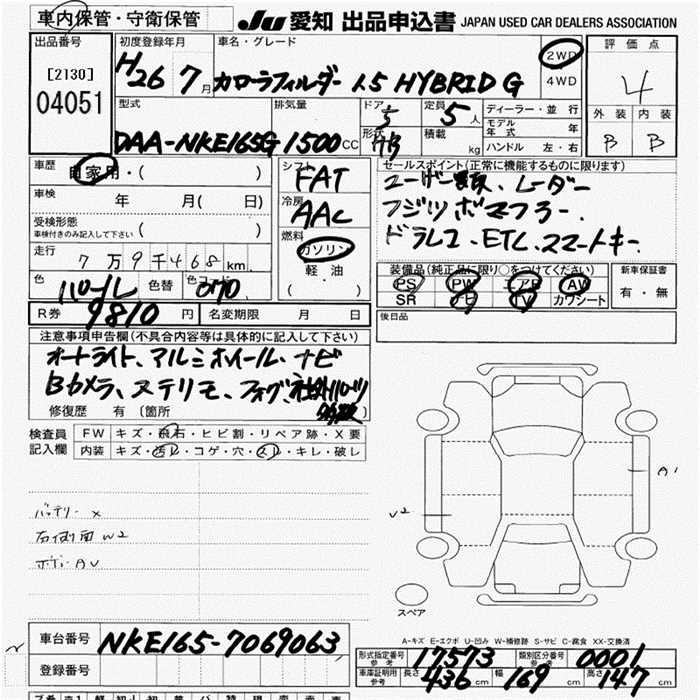 車内保管・守衛保管
JU 愛知 出品申込書 JAPAN USED CAR DEALERS ASSOCIATION
出品番号 初度登録年月 車名・グレード 2WD 評価点
[2130] H26 7月 カローラフィルダー 1.5 HYBRID G 4WD 4
04051 型式 排気量 ドア 定員 ディーラー・並行 外装 内装
5 5人 モデル年式 年
DAA-NKE165G 1500cc 形状 HB 積載 kg ハンドル 左・右 B B
車歴 自家用・( ) シフト FAT セールスポイント(正常に機能するものに限ります)
車検 年 月( 日) 冷房 AAC ユーザー買取、レーダー
受検形態 車検付きのみ記入して下さい ( ) 燃料 フジツボマフラー、
走行 7万9千468km ガソリン ドラレコ、ETC、スマートキー
色 パール 色替 色コード 070 軽油 (・)
装備品(純正品に限り○をつけてください) 新車保証書
PS PW エアB AW 有・無
SR ナビ TV カワシート
R券 9810円 名変期限 月 日 後日品
注意事項申告欄(不具合内容等は具体的に記入して下さい)
オートライト、アルミホイール、ナビ
Bカメラ、ステリモ、フォグ、社外パーツ
多数
修復歴 有 〔箇所 〕
検査員 FW キズ・飛石・ヒビ割・リペア跡・X要
記入欄 内装 キズ・汚レ・コゲ・穴・スレ・キレ・破レ
A1
バッテリーX
V2
右側面 W2
ボディAV
スペア
A-キズ E-エクボ U-凹み W-補修跡 S-サビ C-腐食 XX-交換済
車台番号 NKE165-7069063
形式指定番号 参考 17573 類別区分番号 参考 0001
登録番号 車庫証明用 参考 長さ 436cm 幅 169cm 高さ 147cm